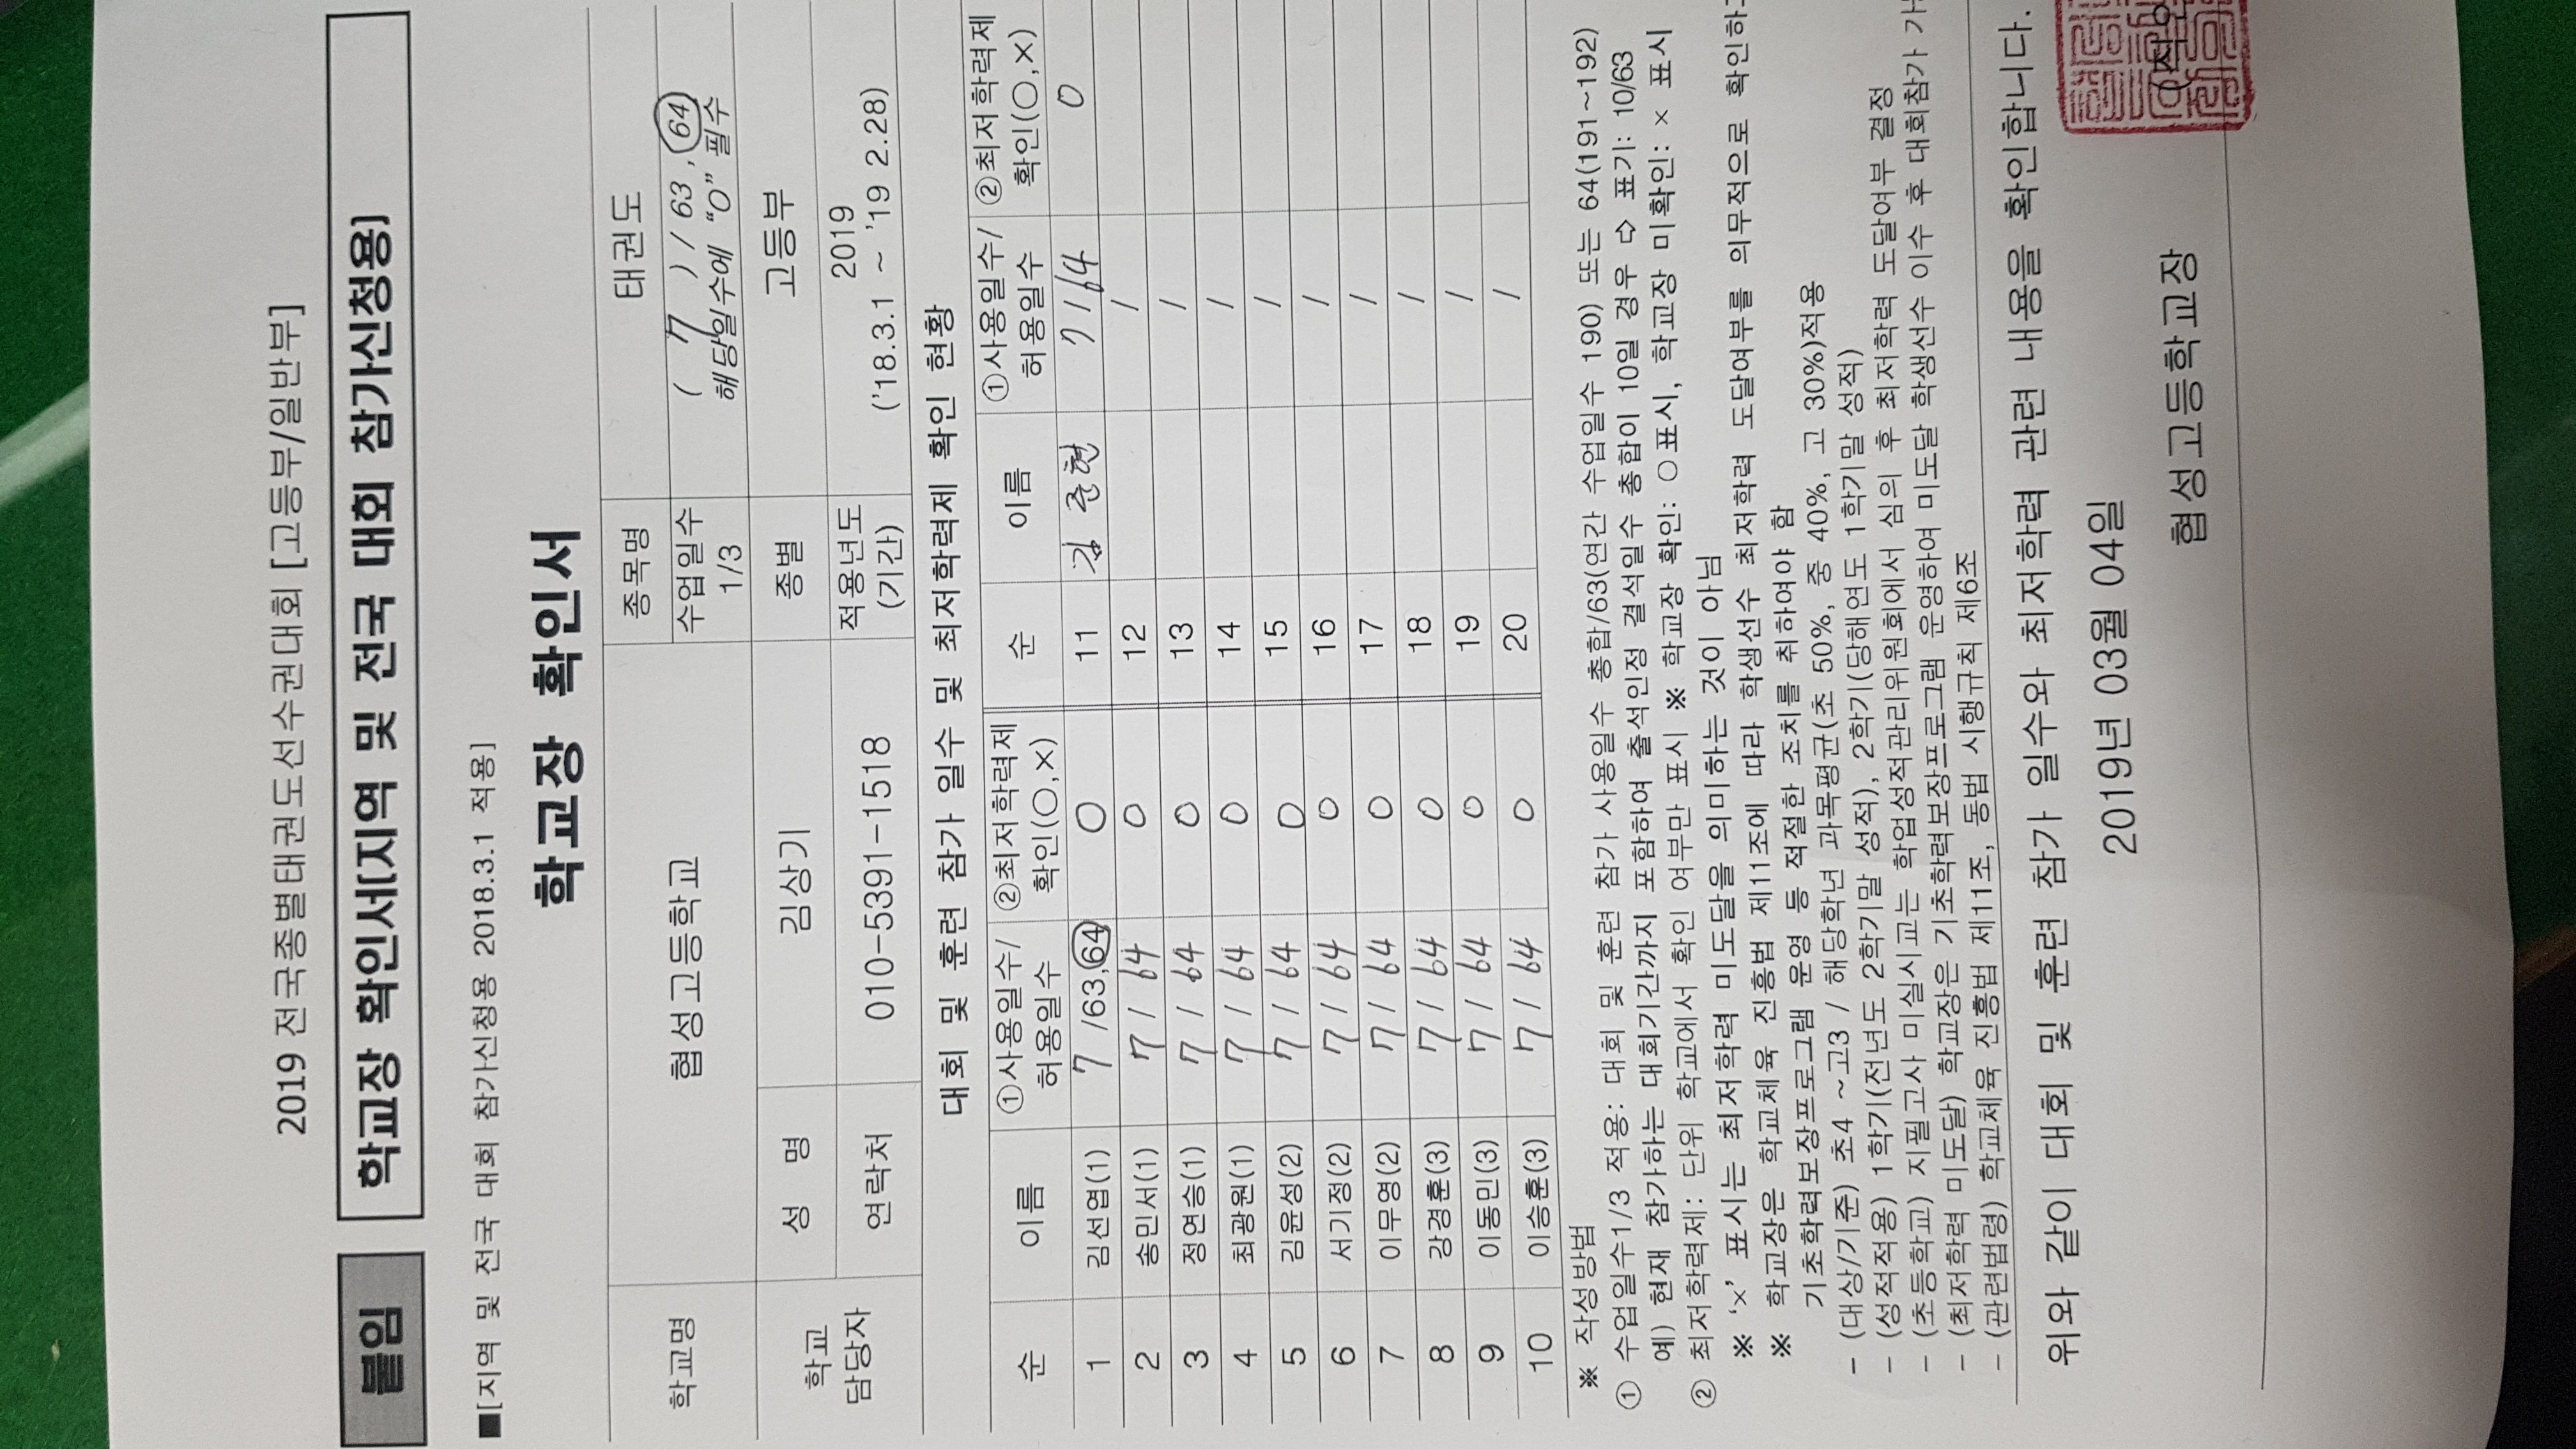 2019 전국종별태권도선수권대회 [고등부/일반부]
붙임 학교장 확인서[지역 및 전국 대회 참가신청용]
■[지역 및 전국 대회 참가신청용 2018.3.1 적용]
학교장 확인서
학교명 협성고등학교 종목명 태권도
수업일수 1/3 ( 7 ) / 63 , 64
해당일수에 "O" 필수
학교 담당자 성 명 김상기 종별 고등부
연락처 010-5391-1518 적용년도 (기간) 2019
('18.3.1 ~ '19 2.28)
대회 및 훈련 참가 일수 및 최저학력제 확인 현황
순 이름 ①사용일수/허용일수 ②최저학력제 확인(○,×) 순 이름 ①사용일수/허용일수 ②최저학력제 확인(○,×)
1 김선엽(1) 7 /63,64 O 11 김준현 7/64 O
2 송민서(1) 7 / 64 O 12 /
3 정연승(1) 7 / 64 O 13 /
4 최광원(1) 7 / 64 O 14 /
5 김윤성(2) 7 / 64 O 15 /
6 서기정(2) 7 / 64 O 16 /
7 이무영(2) 7 / 64 O 17 /
8 강경훈(3) 7 / 64 O 18 /
9 이동민(3) 7 / 64 O 19 /
10 이승훈(3) 7 / 64 O 20 /
※ 작성방법
① 수업일수1/3 적용: 대회 및 훈련 참가 사용일수 총합/63(연간 수업일수 190) 또는 64(191~192)
예) 현재 참가하는 대회기간까지 포함하여 출석인정 결석일수 총합이 10일 경우 ⇨ 표기: 10/63
② 최저학력제: 단위 학교에서 확인 여부만 표시 ※ 학교장 확인: ○표시, 학교장 미확인: × 표시
※ '×' 표시는 최저학력 미도달을 의미하는 것이 아님
※ 학교장은 학교체육 진흥법 제11조에 따라 학생선수 최저학력 도달여부를 의무적으로 확인하고
기초학력보장프로그램 운영 등 적절한 조치를 취하여야 함
- (대상/기준) 초4 ~고3 / 해당학년 과목평균(초 50%, 중 40%, 고 30%)적용
- (성적적용) 1학기(전년도 2학기말 성적), 2학기(당해연도 1학기말 성적)
- (초등학교) 지필고사 미실시교는 학업성적관리위원회에서 심의 후 최저학력 도달여부 결정
- (최저학력 미도달) 학교장은 기초학력보장프로그램 운영하여 미도달 학생선수 이수 후 대회참가
- (관련법령) 학교체육 진흥법 제11조, 동법 시행규칙 제6조
위와 같이 대회 및 훈련 참가 일수와 최저학력 관련 내용을 확인합니다.
2019년 03월 04일
협성고등학교장